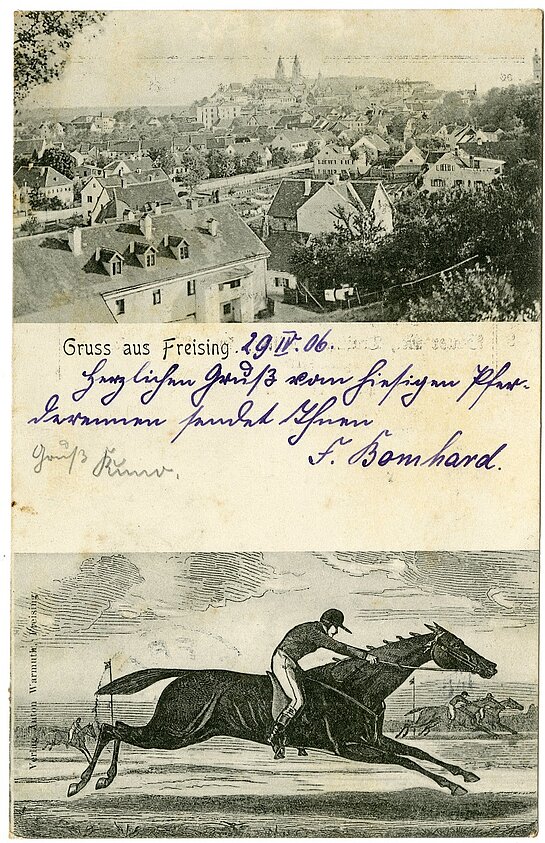 Gruss aus Freising. 29 IV. 06.
Herzlichen Gruß vom hiesigen Pfer-
derennen sendet Ihnen
F. Bomhard.
Gruß Kuno.
Verlag Anton Warmuth, Freising